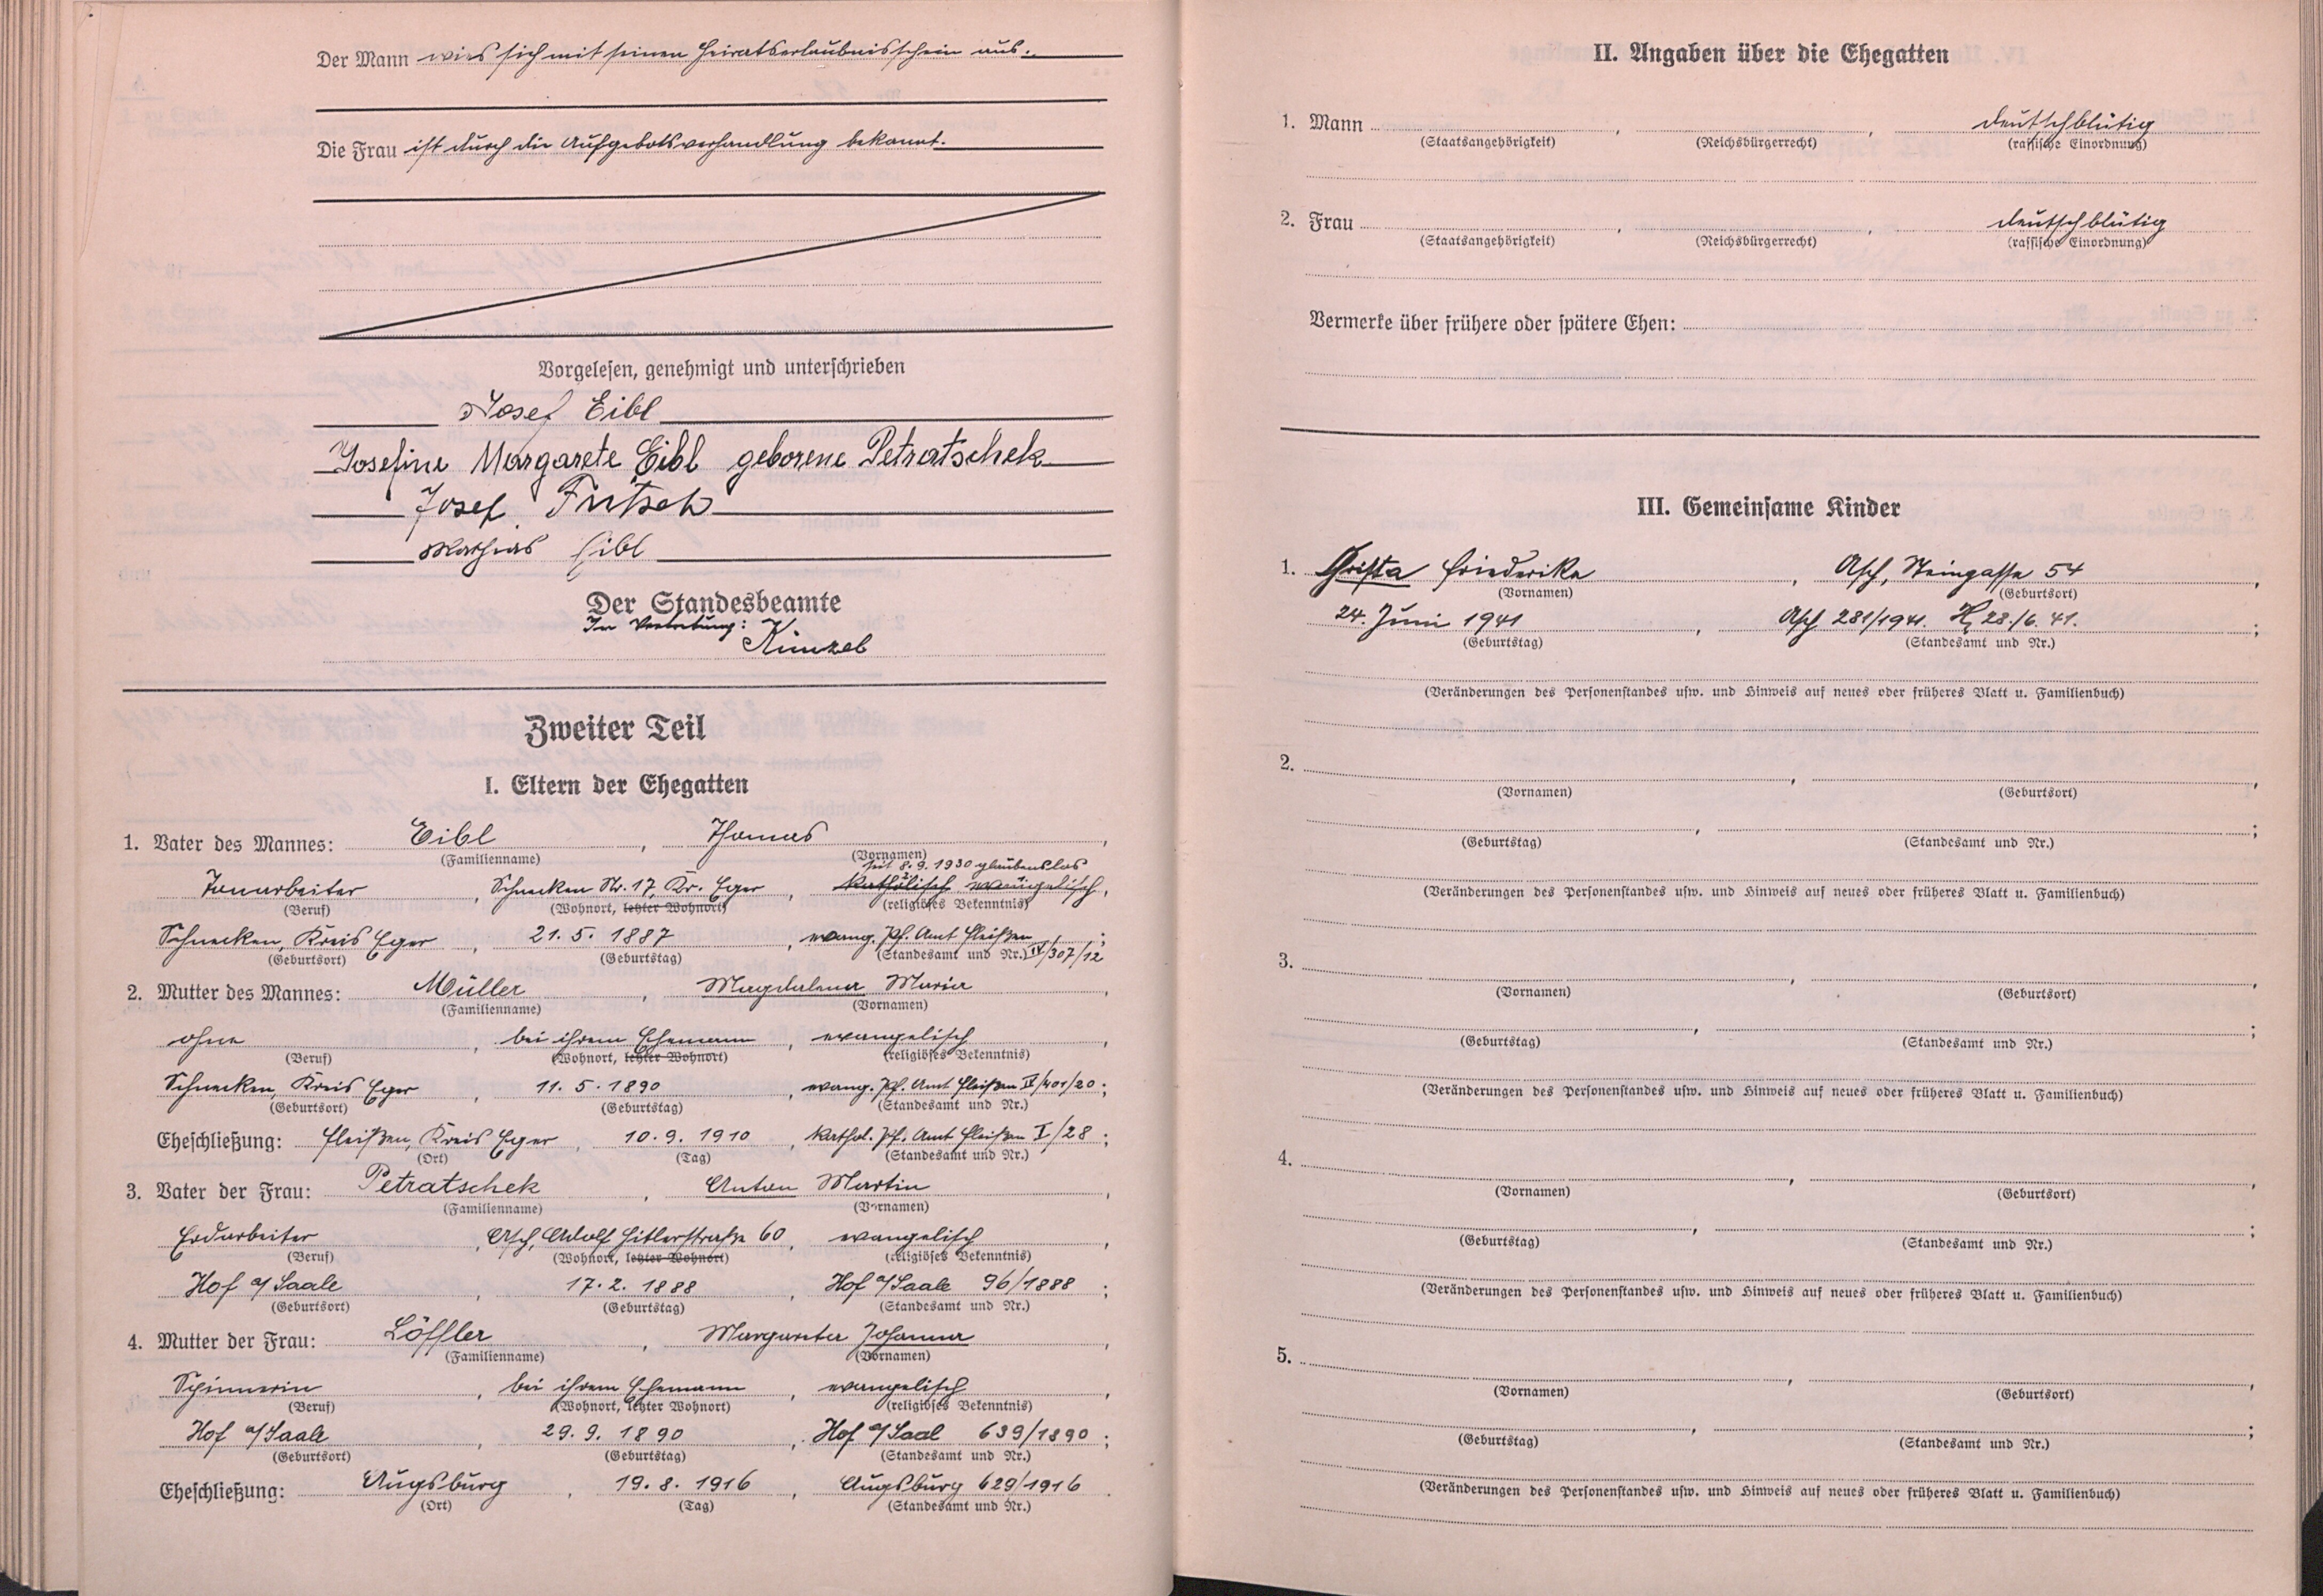 Der Mann wies sich mit seinen Heiratserlaubnisschein aus.
Die Frau ist durch die Aufgebotsverhandlung bekannt.
Vorgelesen, genehmigt und unterschrieben
Josef Eibl
Josefine Margarete Eibl geborene Petratschek
Josef Fritsch
Mathias Eibl
Der Standesbeamte
In Vertretung:
Künzel
Zweiter Teil
I. Eltern der Ehegatten
1. Vater des Mannes: Eibl, Thomas,
(Familienname) (Vornamen)
seit 8.9.1930 glaubenslos
Tonarbeiter, Schnecken Nr. 17, Kr. Eger, katholisch evangelisch,
(Beruf) (Wohnort, letzter Wohnort) (religiöses Bekenntnis)
Schnecken, Kreis Eger, 21. 5. 1887, evang. Pf. Amt Fleißen;
(Geburtsort) (Geburtstag) (Standesamt und Nr.) IV/307/12
2. Mutter des Mannes: Müller, Magdalena Maria,
(Familienname) (Vornamen)
ohne, bei ihrem Ehemann, evangelisch,
(Beruf) (Wohnort, letzter Wohnort) (religiöses Bekenntnis)
Schnecken, Kreis Eger, 11. 5. 1890, evang. Pf. Amt Fleißen IV/401/20;
(Geburtsort) (Geburtstag) (Standesamt und Nr.)
Eheschließung: Fleißen, Kreis Eger, 10. 9. 1910, kathol. Pf. Amt Fleißen I/28;
(Ort) (Tag) (Standesamt und Nr.)
3. Vater der Frau: Petratschek, Anton Martin,
(Familienname) (Vornamen)
Erdarbeiter, Asch, Adolf Hitlerstraße 60, evangelisch,
(Beruf) (Wohnort, letzter Wohnort) (religiöses Bekenntnis)
Hof a/Saale, 17. 2. 1888, Hof a/Saale 96/1888;
(Geburtsort) (Geburtstag) (Standesamt und Nr.)
4. Mutter der Frau: Löffler, Margareta Johanna,
(Familienname) (Vornamen)
Spinnerin, bei ihrem Ehemann, evangelisch,
(Beruf) (Wohnort, letzter Wohnort) (religiöses Bekenntnis)
Hof a/Saale, 29. 9. 1890, Hof a/Saal 639/1890;
(Geburtsort) (Geburtstag) (Standesamt und Nr.)
Eheschließung: Augsburg, 19. 8. 1916, Augsburg 629/1916.
(Ort) (Tag) (Standesamt und Nr.)
II. Angaben über die Ehegatten
1. Mann , , deutschblütig
(Staatsangehörigkeit) (Reichsbürgerrecht) (rassische Einordnung)
2. Frau , , deutschblütig
(Staatsangehörigkeit) (Reichsbürgerrecht) (rassische Einordnung)
Vermerke über frühere oder spätere Ehen:
III. Gemeinsame Kinder
1. Christa Friederike, Asch, Steingasse 54,
(Vornamen) (Geburtsort)
24. Juni 1941, Asch 281/1941. 28./6. 41.;
(Geburtstag) (Standesamt und Nr.)
(Veränderungen des Personenstandes usw. und Hinweis auf neues oder früheres Blatt u. Familienbuch)
2. , ,
(Vornamen) (Geburtsort)
, ;
(Geburtstag) (Standesamt und Nr.)
(Veränderungen des Personenstandes usw. und Hinweis auf neues oder früheres Blatt u. Familienbuch)
3. , ,
(Vornamen) (Geburtsort)
, ;
(Geburtstag) (Standesamt und Nr.)
(Veränderungen des Personenstandes usw. und Hinweis auf neues oder früheres Blatt u. Familienbuch)
4. , ,
(Vornamen) (Geburtsort)
, ;
(Geburtstag) (Standesamt und Nr.)
(Veränderungen des Personenstandes usw. und Hinweis auf neues oder früheres Blatt u. Familienbuch)
5. , ,
(Vornamen) (Geburtsort)
, ;
(Geburtstag) (Standesamt und Nr.)
(Veränderungen des Personenstandes usw. und Hinweis auf neues oder früheres Blatt u. Familienbuch)